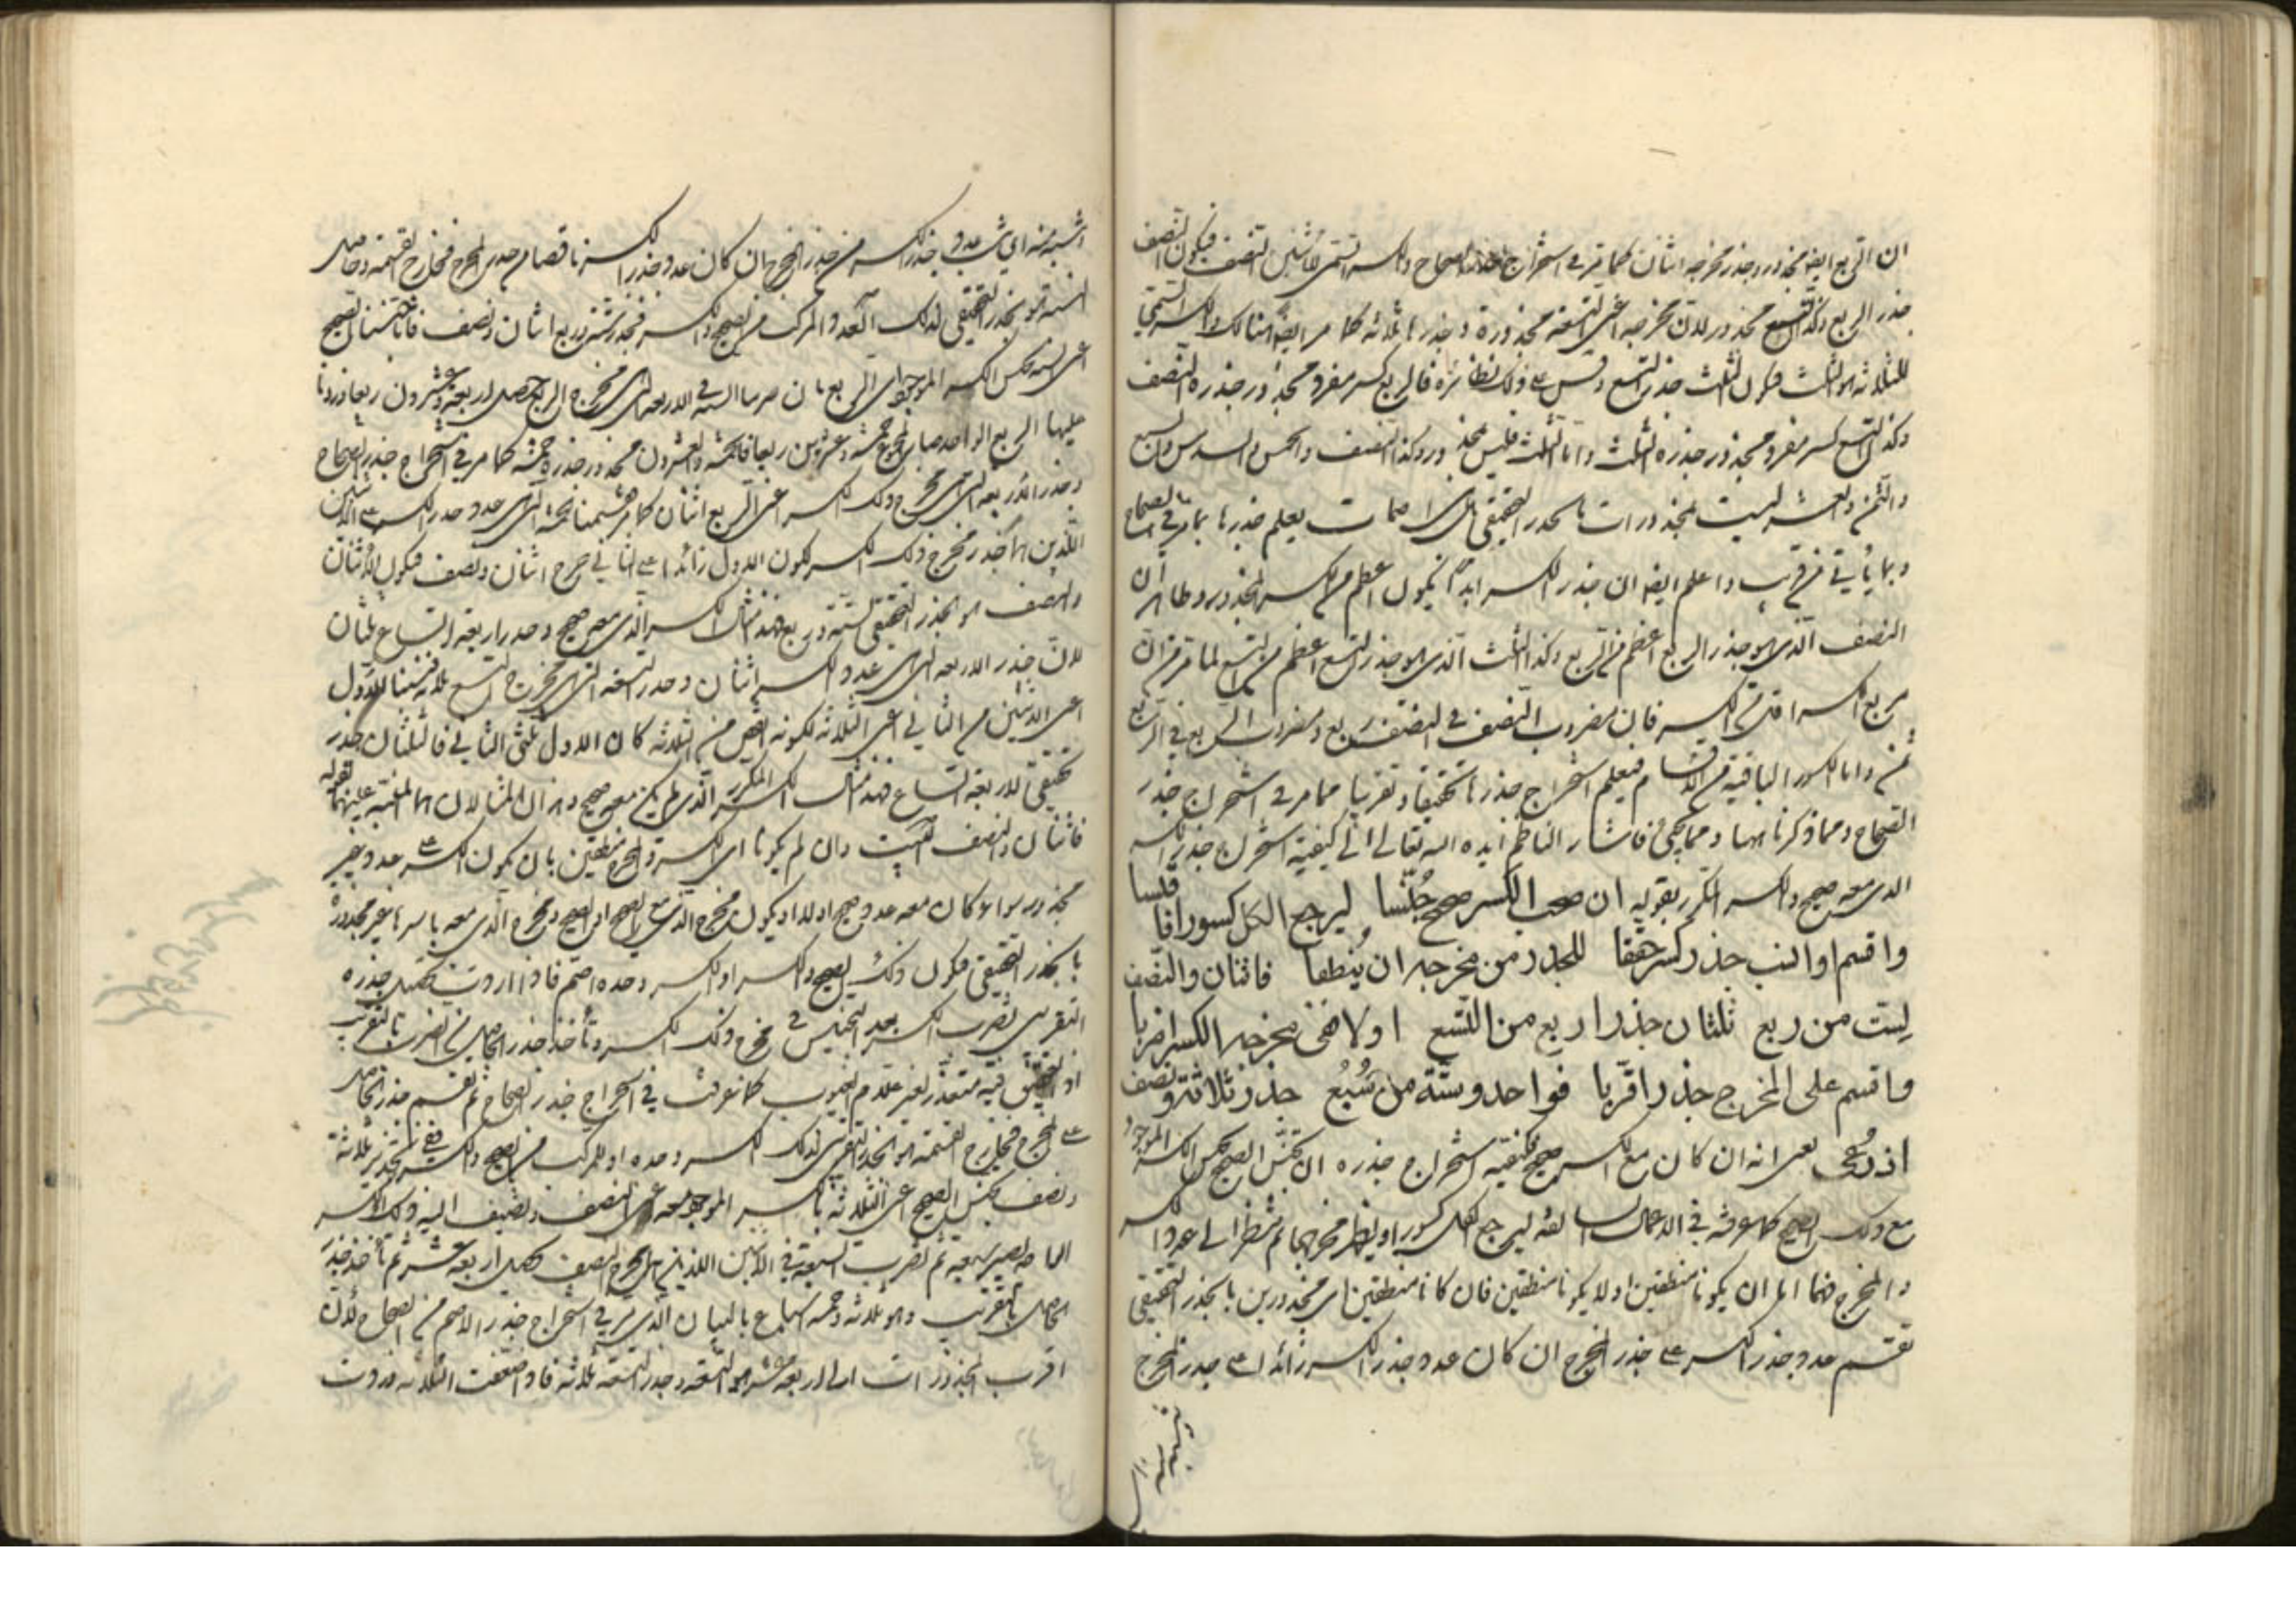 ان الربع ايضا مجذور وجذر مخرجه اثنان كما مر في استخراج جذر الصحاح والكسر السمي للاثنين النصف فيكون النصف
جذر الربع وكذا التسع مجذور لان مخرجه اعني التسعة مجذورة وجذرها ثلاثة كما مر ايضا هنالك والكسر السمي
للثلاثة هو الثلث فيكون الثلث جذر التسع وقس على ذلك نظائره فالربع كسر مفرد مجذور جذره النصف
وكذا التسع كسر مفرد مجذور جذره الثلث واما الثلث فليس بمجذور وكذا النصف والخمس والسدس والسبع
والثمن والعشر ليست بمجذورات بالجذر الحقيقي بل هي اصمات يعلم جذرها بما مر في الصحاح
وبما ياتي عن قريب واعلم ايضا ان جذر الكسر ابدا يكون اعظم من الكسر المجذور وظاهر ان
النصف الذي هو جذر الربع اعظم من الربع وكذا الثلث الذي هو جذر التسع اعظم من التسع لما مر من ان
مربع الكسر اقل من الكسر فان مضروب النصف في النصف ربع ومضروب الربع في الربع
ثمن واما الكسور الباقية من الاقسام فيعلم استخراج جذرها تحقيقا وتقريبا مما مر في استخراج جذر
الصحاح ومما ذكرنا ههنا ومما يجيء فاشار الناظم ايده الله تعالى الى كيفية استخراج جذر الكسر
الذي معه صحيح والكسر المكرر بقوله ان صحب الكسر صحيح جنسا ليرجع الكل كسورا فاقسا
واقسم او انسب جذر كسر حققا للجذر من مخرجه ان ينطقا فاثنان والنصف
لست من ربع ثلثان جذر اربع من التسع او لا ففي مخرجه الكسر اضربا
واقسم على المخرج جذرا قربا فواحد وستة من سبع جذر ثلاثة ونصف
اذ دعي يعني انه ان كان مع الكسر صحيح فكيفية استخراج جذره ان تجنس الصحيح بجنس الكسر الموجود
مع ذلك الصحيح كما عرفته في الاعمال السالفة ليرجع الكل كسورا وينظر مخرجها ثم تنظر الى عدد الكسر
والمخرج فهما اما ان يكونا منطقين او لا يكونا منطقين فان كانا منطقين اي مجذورين بالجذر الحقيقي
تقسم عدد جذر الكسر على جذر المخرج ان كان عدد جذر الكسر زائدا على جذر المخرج
انسبه منه اي نسب عدد جذر الكسر من جذر المخرج ان كان عدد جذر الكسر ناقصا من جذر المخرج فخارج القسمة وحاصل
النسبة هو الجذر الحقيقي لذلك العدد المركب من الصحيح والكسر فجذر ستة وربع اثنان ونصف فانا جنسنا الصحيح
اعني الستة بجنس الكسر الموجود اي الربع بان ضربنا الستة في الاربعة التي هي مخرج الربع حصل اربعة وعشرون ربعا وزدنا
عليها الربع الواحد صار المجموع خمسة وعشرين ربعا فالخمسة والعشرون مجذور جذره خمسة كما مر في استخراج جذر الصحاح
وجذر الاربعة التي هي مخرج ذلك الكسر اعني الربع اثنان كما مر فقسمنا الخمسة التي هي عدد جذر الكسر على الاثنين
اللذين هما جذر مخرج ذلك الكسر لكون الاول زائدا على الثاني خرج اثنان ونصف فيكون الاثنان
والنصف هو الجذر الحقيقي لستة وربع فهذا مثال الكسر الذي معه صحيح وجذر اربعة اتساع ثلثان
لان جذر الاربعة التي هي عدد الكسر اثنان وجذر التسعة التي هي مخرج التسع ثلاثة فنسبنا الاول
اعني الاثنين من الثاني اعني الثلاثة لكونه انقص من الثلاثة كان الاول ثلثي الثاني فالثلثان جذر
حقيقي لاربعة اتساع فهذا مثال الكسر المكرر الذي لم يكن معه صحيح وهذان المثالان هما المنبه عليهما بقوله
فاثنان والنصف البيت وان لم يكونا اي الكسر والمخرج منطقين بان يكون الكسر عدد غير
مجذور سواء كان معه عدد صحيح او لا او يكون مخرج الذي مع الصحيح او الصحيح ومخرج الذي معه باسرها غير مجذورة
بالجذر الحقيقي فيكون ذلك الصحيح والكسر او الكسر وحده اصم فاذا اردت تحصيل جذره
التقريبي تضرب الكسر بعد التجنيس في مخرج ذلك الكسر وتأخذ جذر الحاصل من الضرب بالتقريب
اذ التحقيق فيه متعذر لغير علام الغيوب كما عرفت في استخراج جذر الصحاح ثم تقسم جذر الحاصل
على المخرج فخارج القسمة هو الجذر التقريبي لذلك الكسر وحده او للمركب من الصحيح والكسر ففي تجذير ثلاثة
ونصف تجنس الصحيح اعني الثلاثة بالكسر الموجود معه اعني النصف وتضيف اليه ذلك الكسر
الحاصل يصير سبعة ثم تضرب السبعة في الاثنين اللذين هما مخرج النصف يحصل اربعة عشر ثم تأخذ جذر
الحاصل بالتقريب وهو ثلاثة وخمسة اسباع بالبيان الذي مر في استخراج جذر الاصم من الصحاح لان
اقرب المجذورات الى اربعة عشر هو التسعة وجذر التسعة ثلاثة فاذا ضعفت الثلاثة وزدت